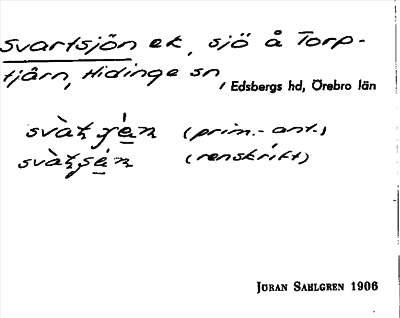 Svartsjön ek, sjö å Torp-
tjärn, Hidinge sn,
Edsbergs hd, Örebro län
(prim.-ant.)
(renskrift)
JÖRAN SAHLGREN 1906